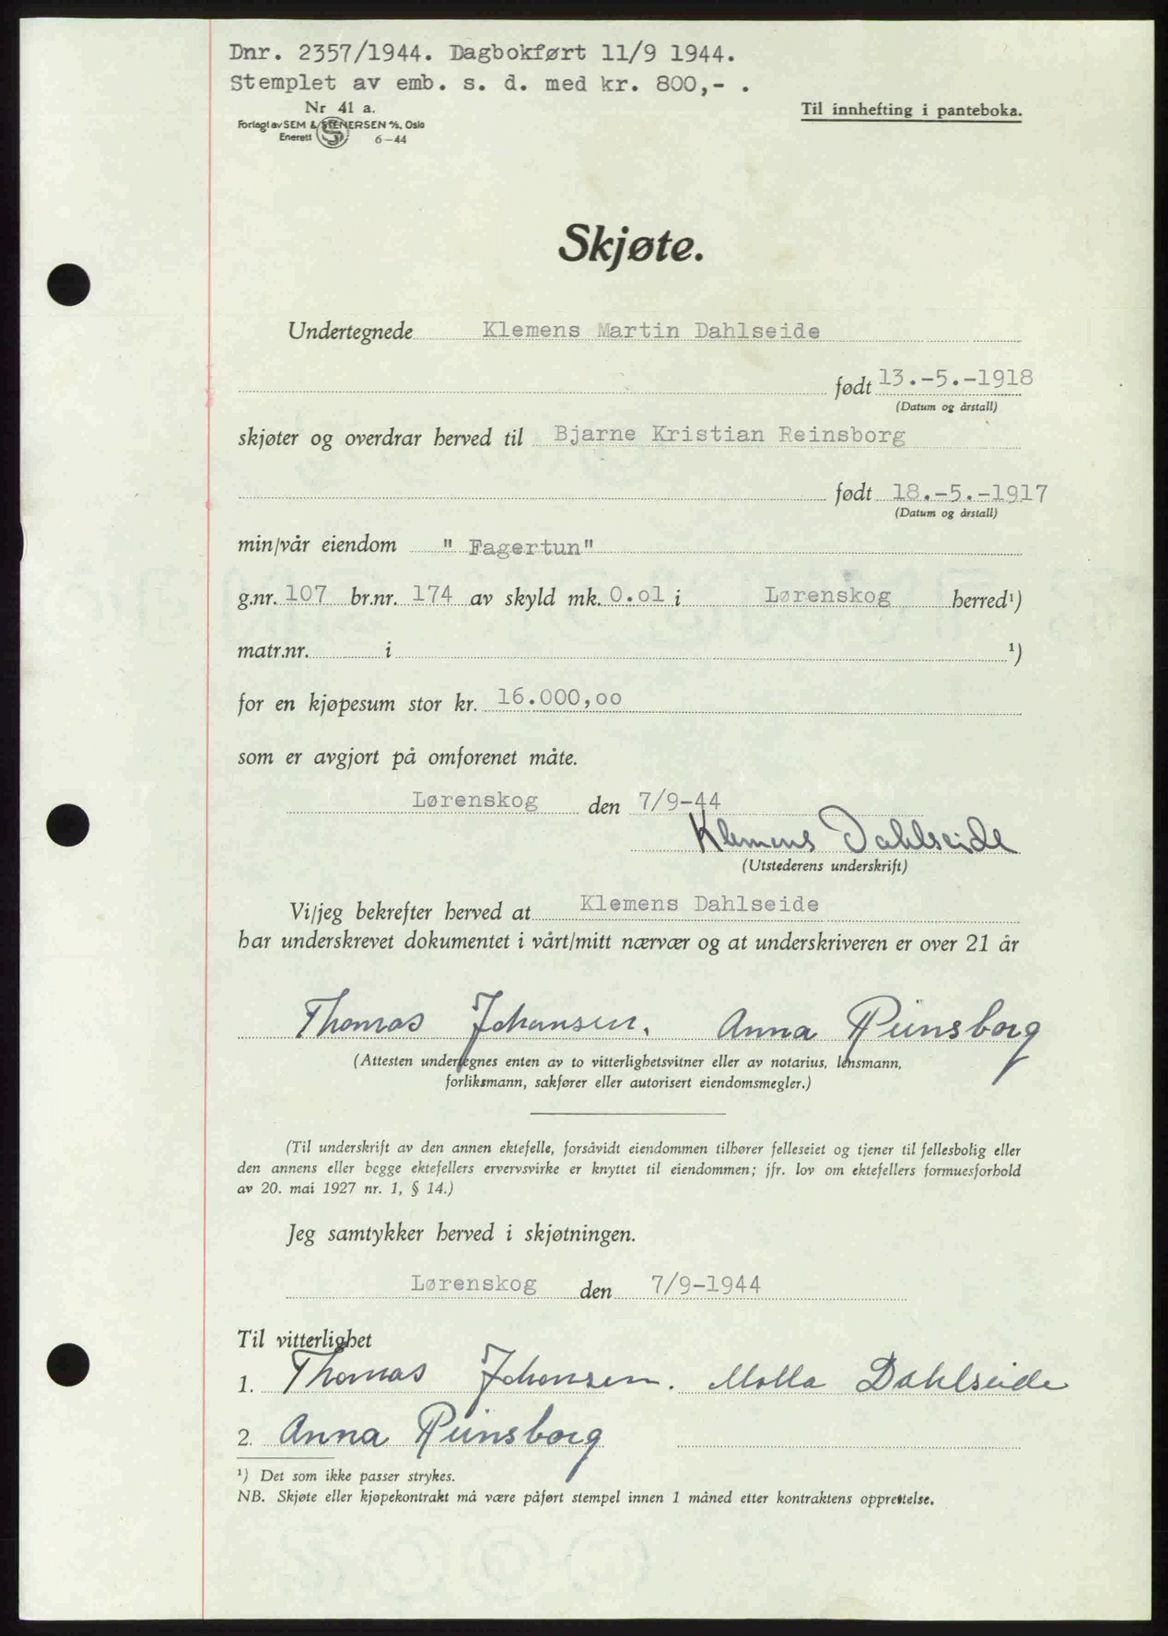 Dnr. 2357/1944. Dagbokført 11/9 1944.
Stemplet av emb. s. d. med kr. 800,- .
Nr 41 a.
Til innhefting i panteboka.
Forlagt av SEM & STENERSEN A/S, Oslo
Enerett S 6-44
Skjøte.
Undertegnede Klemens Martin Dahlseide
født 13.-5.-1918
(Datum og årstall)
skjøter og overdrar herved til Bjarne Kristian Reinsborg
født 18.-5.-1917
(Datum og årstall)
min/vår eiendom " Fagertun"
g.nr. 107 br.nr. 174 av skyld mk. 0.01 i Lørenskog herred¹)
matr.nr. i ¹)
for en kjøpesum stor kr. 16.000,oo
som er avgjort på omforenet måte.
Lørenskog den 7/9-44
Klemens Dahlseide
(Utstederens underskrift)
Vi/jeg bekrefter herved at Klemens Dahlseide
har underskrevet dokumentet i vårt/mitt nærvær og at underskriveren er over 21 år
Thomas Johansen. Anna Reinsborg
(Attesten undertegnes enten av to vitterlighetsvitner eller av notarius, lensmann,
forliksmann, sakfører eller autorisert eiendomsmegler.)
(Til underskrift av den annen ektefelle, forsåvidt eiendommen tilhører felleseiet og tjener til fellesbolig eller
den annens eller begge ektefellers ervervsvirke er knyttet til eiendommen; jfr. lov om ektefellers formuesforhold
av 20. mai 1927 nr. 1, § 14.)
Jeg samtykker herved i skjøtningen.
Lørenskog den 7/9-1944
Til vitterlighet
1. Thomas Johansen. Molla Dahlseide
2. Anna Reinsborg
¹) Det som ikke passer strykes.
NB. Skjøte eller kjøpekontrakt må være påført stempel innen 1 måned etter kontraktens opprettelse.